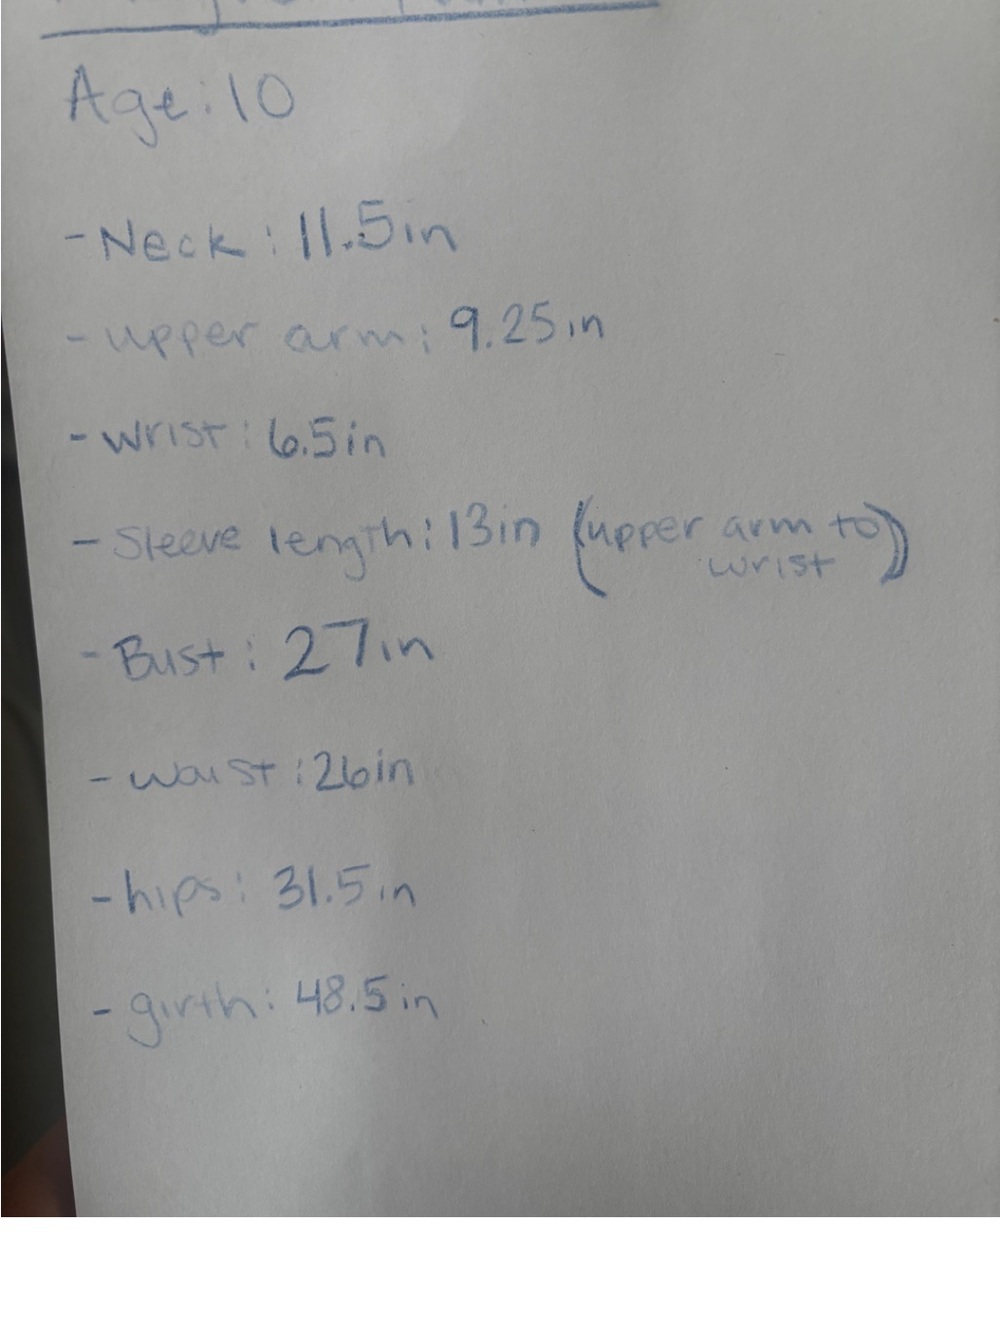 Age: 10
- Neck: 11.5in
- upper arm: 9.25in
- wrist: 6.5in
- Sleeve length: 13in (upper arm to
wrist)
- Bust: 27in
- waist: 26in
- hips: 31.5in
- girth: 48.5in